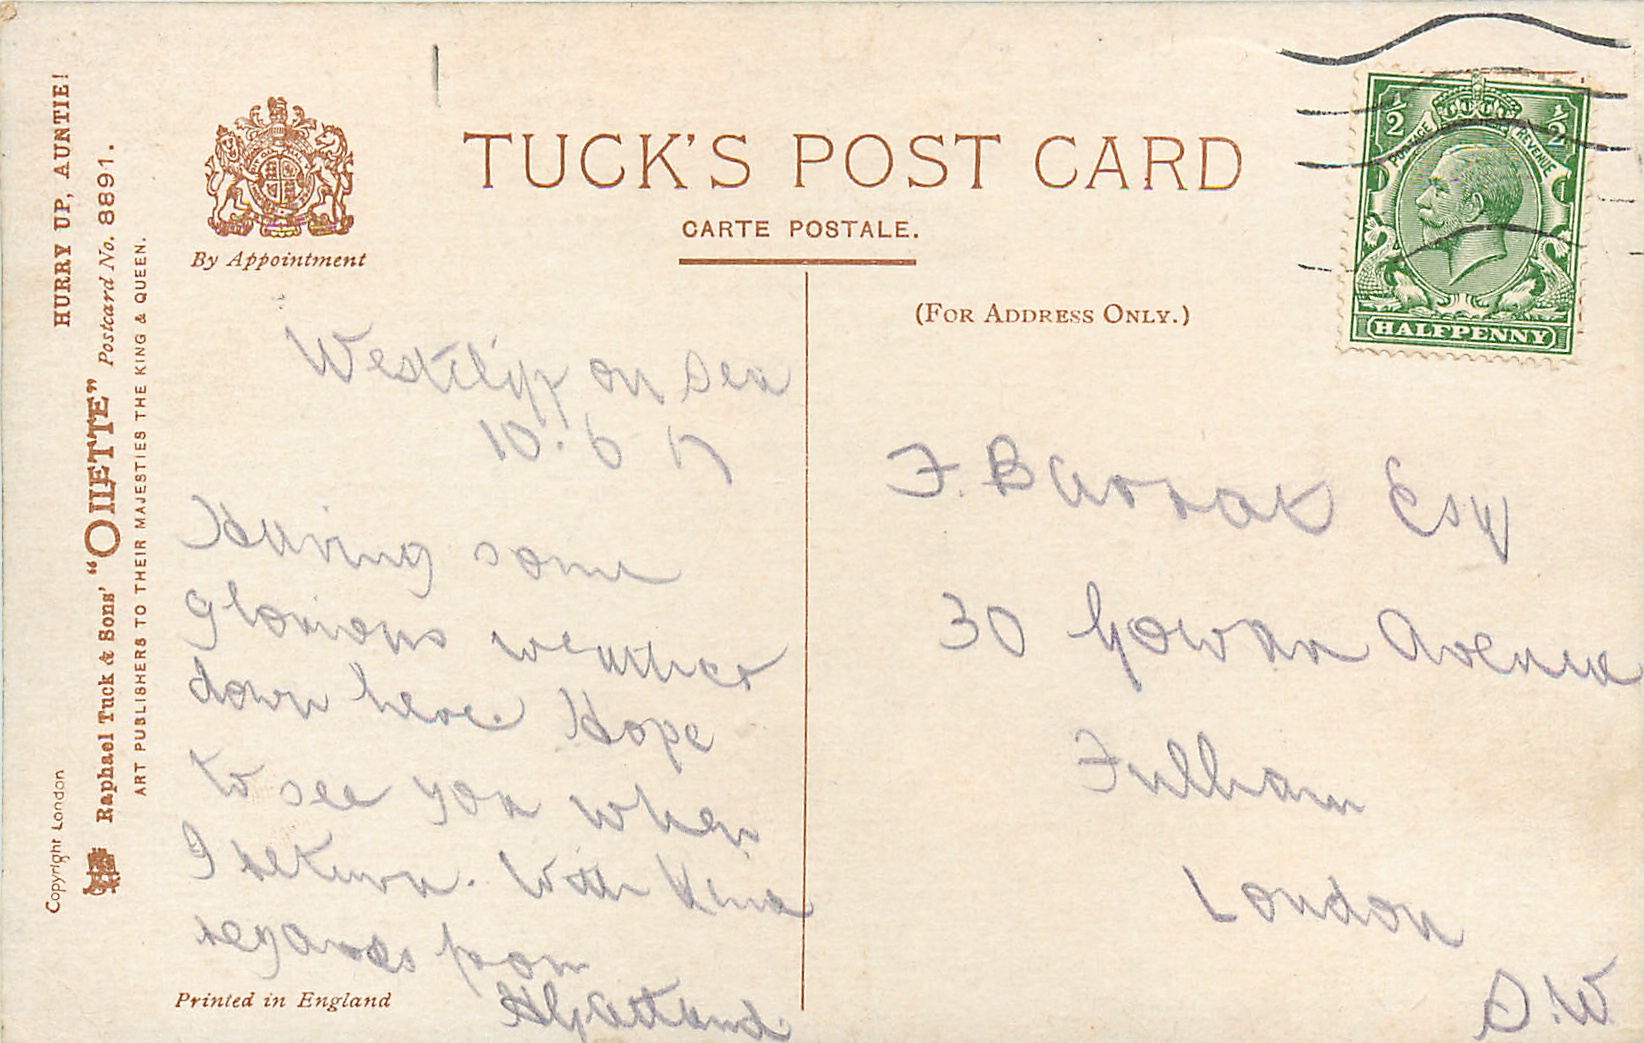 HURRY UP, AUNTIE!
Raphael Tuck & Sons' "OILETTE" Postcard No. 8891.
ART PUBLISHERS TO THEIR MAJESTIES THE KING & QUEEN.
Copyright London
By Appointment
TUCK'S POST CARD
CARTE POSTALE.
(FOR ADDRESS ONLY.)
1/2 1/2
POSTAGE REVENUE
HALFPENNY
Westcliff on Sea
10.6 17
Having some
glorious weather
down here. Hope
to see you when
I return. With Kind
regards from
Printed in England
F. Esq
30 Gowan Avenue
Fulham
London
S.W